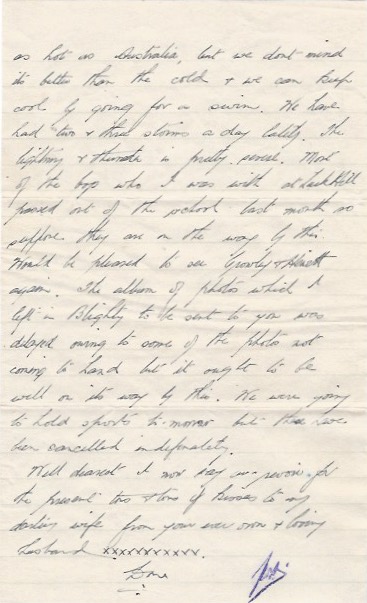 as hot as Australia, but we dont mind
its better than the cold & we can keep
cool by going for a swim. We have
had two & three storms a day lately. The
lightning & thunder is pretty severe. Most
of the boys who I was with at
passed out of the school last month so
suppose they are on the way by this.
Would be pleased to see &
again. The album of photos which I
left in Blighty to be sent to you was
delayed owing to some of the photos not
coming to hand but it ought to be
well on its way by this. We were going
to hold sports to-morrow but these have
been cancelled indefinately.
Well dearest I now say au-revoir for
the present tons & tons of kisses to my
darling wife from your ever own & loving
husband xxxxxxxxxx.